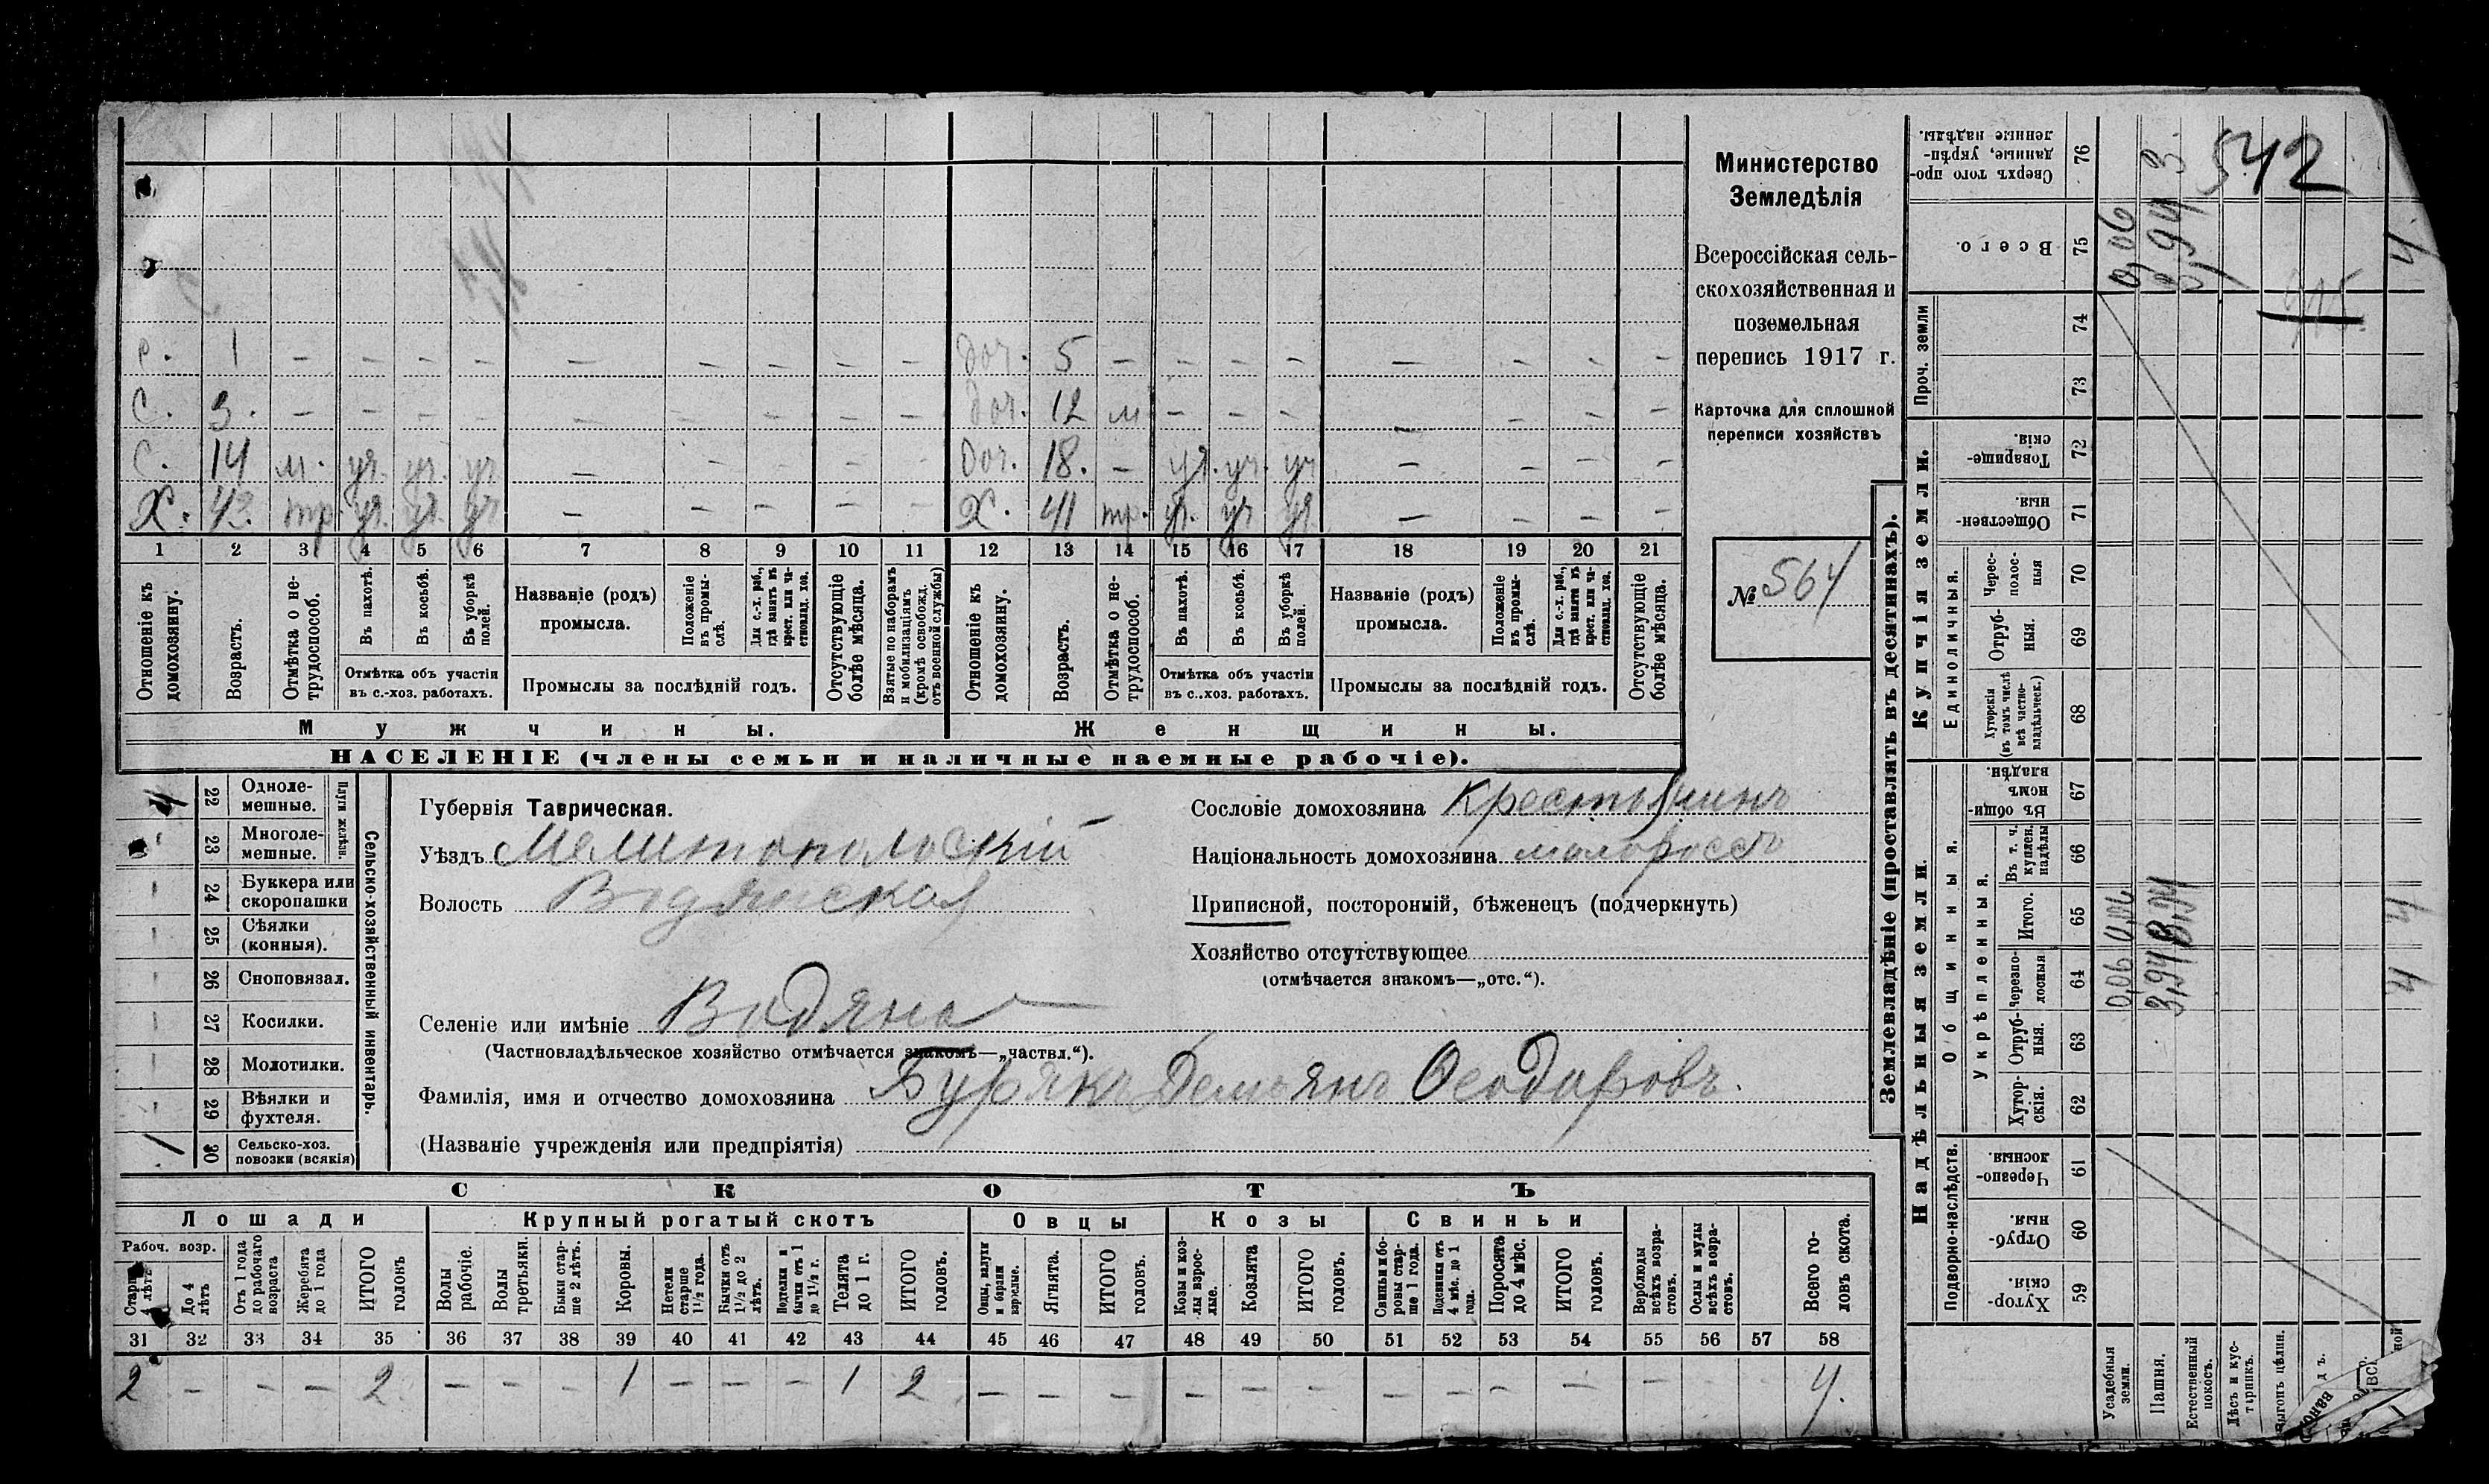 Министерство
Земледѣлія
Всероссійская сель-
скохозяйственная и
поземельная
перепись 1917 г.
Карточка для сплошной
переписи хозяйствъ
№ 564
с. 1 – – – – – – – – – доч. 5 – – – – – – – –
с. 3. – – – – – – – – – доч. 12 м – – – – – – –
с. 14 м. уч. уч. уч – – – – – доч. 18. – уч. уч. уч – – – –
Х. 43. тр. уч. уч. уч – – – – – Х. 41 тр. уч. уч уч – – – –
1 2 3 4 5 6 7 8 9 10 11 12 13 14 15 16 17 18 19 20 21
Отношеніе къ домохозяину.
Возрастъ.
Отмѣтка о не-трудоспособ.
Въ пахотѣ.
Въ косьбѣ.
Въ уборкѣ полей.
Отмѣтка объ участіи
въ с.-хоз. работахъ.
Названіе (родъ)
промысла.
Положеніе въ промы-слѣ.
Для с.-х. раб., гдѣ занятъ въ крест. или ча-стновлад. хоз.
Промыслы за послѣдній годъ.
Отсутствующіе болѣе мѣсяца.
Взятые по наборамъ и мобилизаціямъ (кромѣ освобожд. отъ военной службы)
Отношеніе къ домохозяину.
Возрастъ.
Отмѣтка о не-трудоспособ.
Въ пахотѣ.
Въ косьбѣ.
Въ уборкѣ полей.
Отмѣтка объ участіи
въ с.-хоз. работахъ.
Названіе (родъ)
промысла.
Положеніе въ промы-слѣ.
Для с.-х. раб., гдѣ занята въ крест. или ча-стновлад. хоз.
Промыслы за послѣдній годъ.
Отсутствующіе болѣе мѣсяца.
Мужчины. Женщины.
НАСЕЛЕНІЕ (члены семьи и наличные наемные рабочіе).
22 Одноле-мешные.
23 Многоле-мешные.
Плуги желѣзн.
24 Буккера или скоропашки
25 Сѣялки (конныя).
26 Сноповязал.
27 Косилки.
28 Молотилки.
29 Вѣялки и фухтеля.
1 30 Сельско-хоз. повозки (всякія)
Сельско-хозяйственный инвентарь.
Губернія Таврическая.
Уѣздъ Мелитопольскій
Волость Водянская
Селеніе или имѣніе Водяна
(Частновладѣльческое хозяйство отмѣчается знакомъ—„частвл.“).
Фамилія, имя и отчество домохозяина Бурякъ Демьянъ Ѳеодоровъ.
(Названіе учрежденія или предпріятія)
Сословіе домохозяина Крестьянинъ
Національность домохозяина малороссъ
Приписной, посторонній, бѣженецъ (подчеркнуть)
Хозяйство отсутствующее
(отмѣчается знакомъ—„отс.“).
СКОТЪ
Лошади
Крупный рогатый скотъ
Овцы
Козы
Свиньи
Рабоч. возр.
До 4 лѣтъ
Отъ 1 года до рабочаго возраста
Жеребята до 1 года
ИТОГО головъ
Волы рабочіе.
Волы третьяки.
Быки стар-ше 2 лѣтъ.
Коровы.
Нетели старше 1½ года.
Бычки отъ 1½ до 2 лѣтъ.
Подтелки и бычки отъ 1 до 1½ г.
Телята до 1 г.
ИТОГО головъ.
Овцы, валухи и бараны взрослые.
Ягнята.
ИТОГО головъ.
Козы и коз-лы взрос-лые.
Козлята
ИТОГО головъ.
Свиньи и бо-ровы стар-ше 1 года.
Подсвинки отъ 4 мѣс. до 1 года.
Поросята до 4 мѣс.
ИТОГО головъ.
Верблюды всѣхъ возра-стовъ.
Ослы и мулы всѣхъ возра-стовъ.
Всего го-ловъ скота.
31 32 33 34 35 36 37 38 39 40 41 42 43 44 45 46 47 48 49 50 51 52 53 54 55 56 57 58
2 – – – 2 – – – 1 – – – 1 2 – – – – – – – – – – – – 4.
Землевладѣніе (проставлять въ десятинахъ).
Надѣльныя земли.
Купчія земли.
Проч. земли
Сверхъ того про-данные, укрѣп-ленные надѣлы. 76
Всего. 75
74
73
Товарище-скія. 72
Обществен-ныя. 71
Единоличныя.
Черес-полос-ныя 70
Отруб-ныя. 69
Хуторскія (въ томъ числѣ всѣ частно-владѣльческ.) 68
Общинныя.
Въ общи-номъ владѣн. 67
Укрѣпленныя.
Въ т. ч. куплен. надѣлы 66
Итого. 65
Черезпо-лосныя 64
Отруб-ныя. 63
Хутор-скія. 62
Подворно-наслѣдств.
Черезпо-лосныя. 61
Отруб-ныя. 60
Хутор-скія. 59
Усадебныя земли.
Пашня.
Естественный покосъ.
Лѣсъ и кус-тарникъ.
Выгонъ цѣлин.
0,06
3,94
542
0,06
3,94
4
4
4